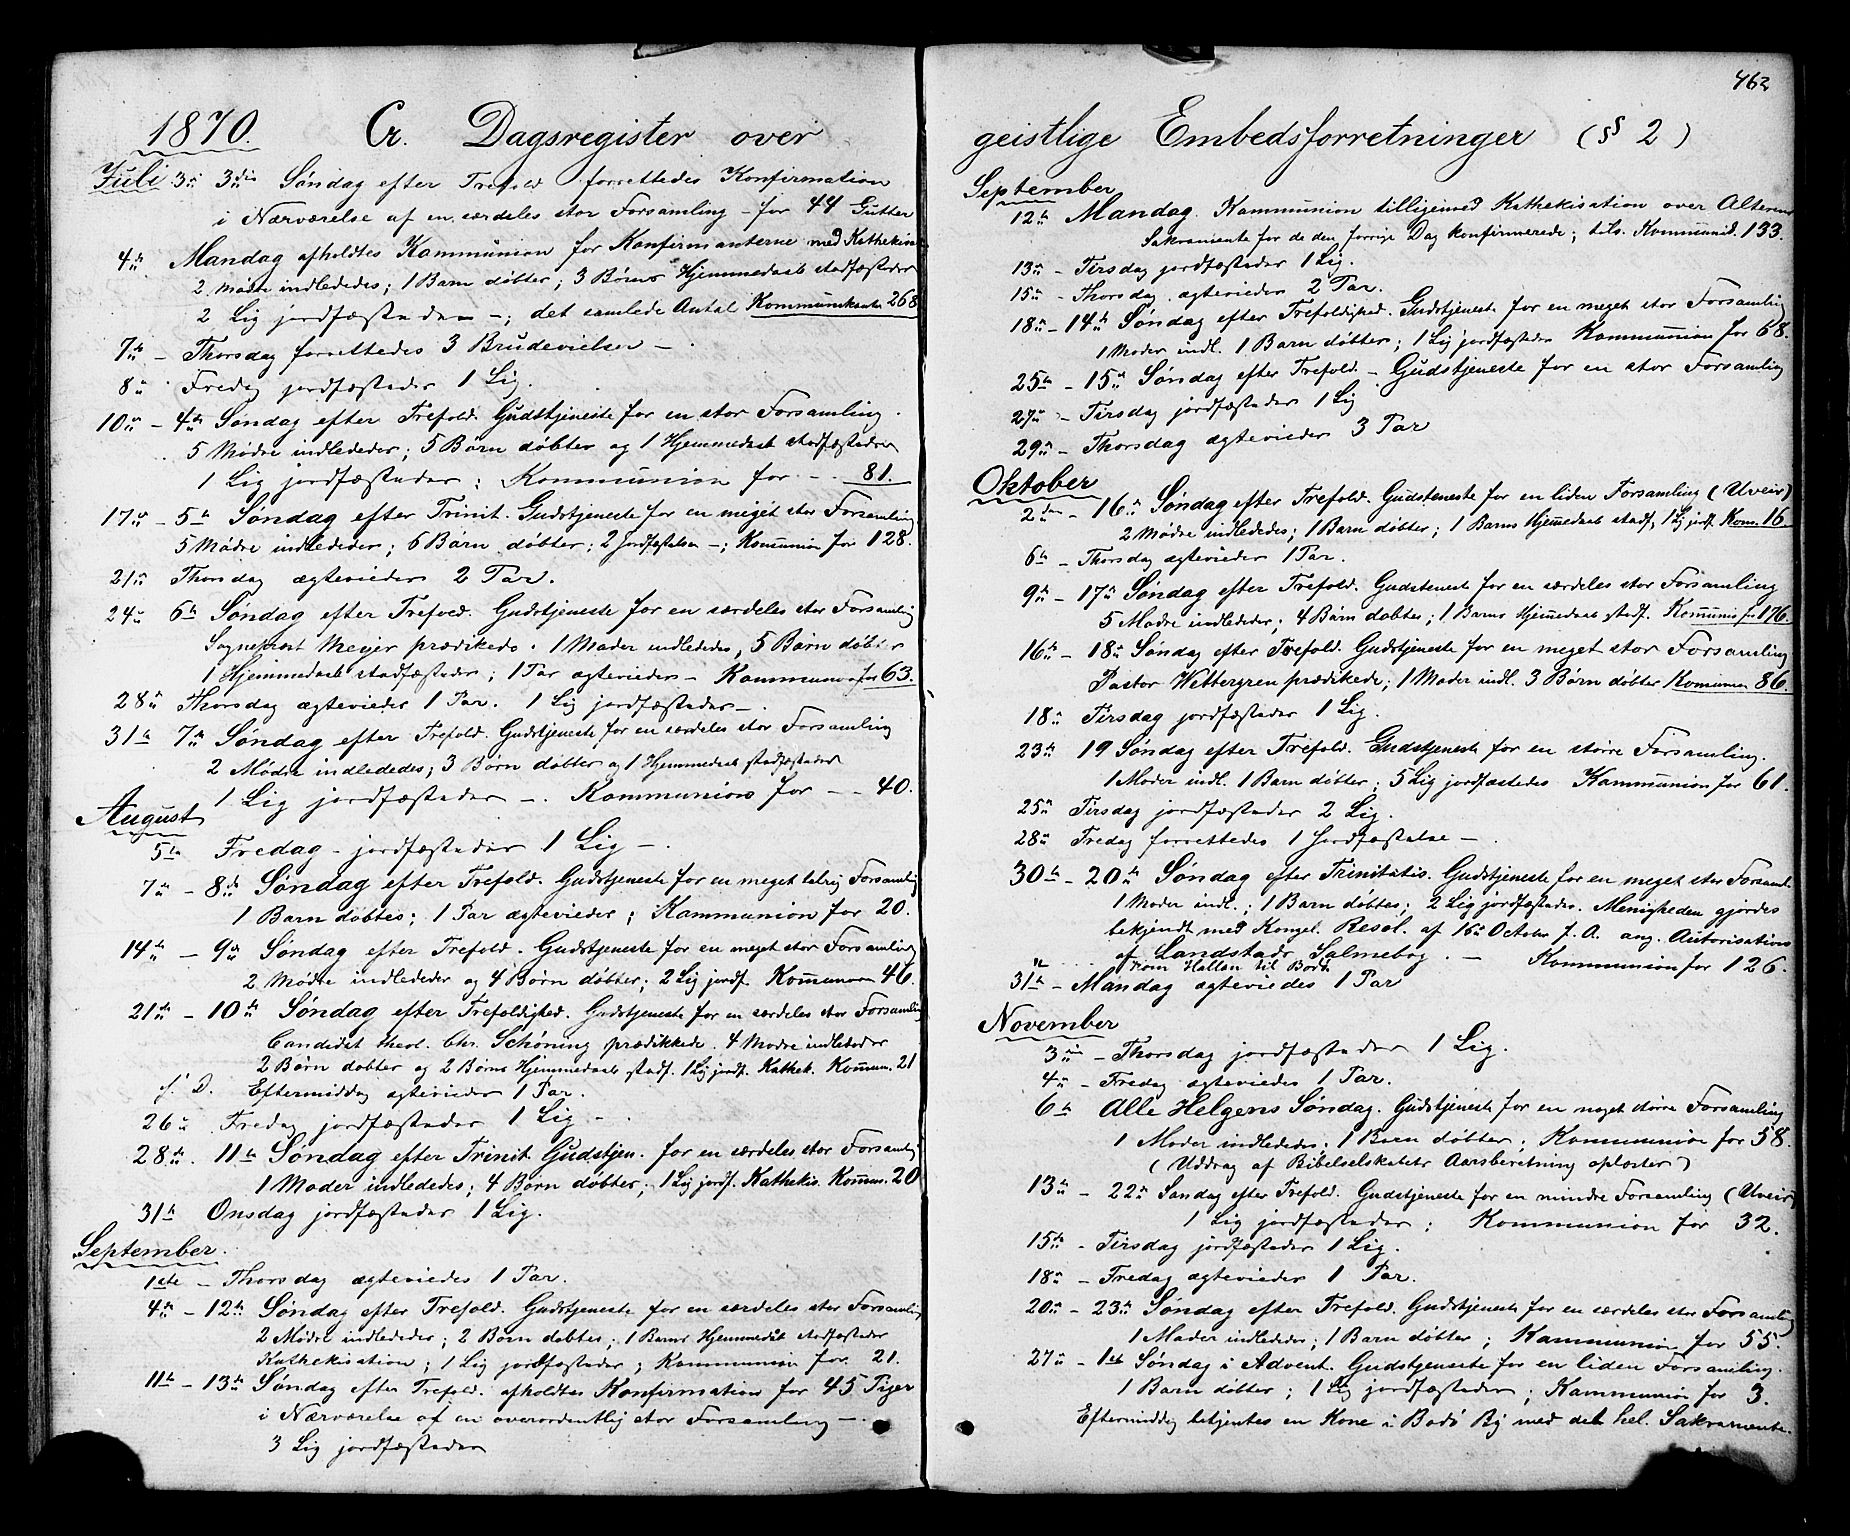 1870. Cr. Dagsregister over
Juli 3die 3die Søndag efter Trefold. forrettedes Konfirmation
i Nærværelse af en særdeles stor Forsamling - for 44 Gutter
4de Mandag afholdtes Kommunion for Konfirmanterne med Kathekisa
2 Mødre indlededes; 1 Barn døbtes; 3 Børns Hjemmedaab stadfæstedes
2 Lig jordfæstedes -; det samlede Antal Kommunikanter 268
7de - Thorsdag forrettedes 3 Brudevielser -
8de Fredag jordfæstedes 1 Lig.
10de - 4de Søndag efter Trefold. Gudstjeneste for en stor Forsamling.
5 Mødre indlededes; 5 Børn døbtes og 1 Hjemmedaab stadfæstedes
1 Lig jordfæstedes; Kommunion for - - 81.
17de - 5te Søndag efter Trinit. Gudstjeneste for en meget stor Forsamling
5 Mødre indlededes; 6 Børn døbtes; 2 Jordfæstelser -; Kommunion for 128.
21de Thorsdag ægteviedes 2 Par.
24de 6te Søndag efter Trefold. Gudstjeneste for en særdeles stor Forsamling
Sogneprest Meyer prædikede. 1 Moder indlededes, 5 Børn døbtes
1 Hjemmedaab stadfæstedes; 1 Par ægteviedes - Kommunion for 63.
28de Thorsdag ægteviedes 1 Par. 1 Lig jordfæstedes -.
31te 7de Søndag efter Trefold. Gudstjeneste for en særdeles stor Forsamling
2 Mødre indlededes; 3 Børn døbtes og 1 Hjemmedaab stadfæstedes
1 Lig jordfæstedes -. Kommunion for - - 40.
August
5te Fredag - jordfæstedes 1 Lig -.
7de - 8de Søndag efter Trefold. Gudstjeneste for en meget talrig Forsamling
1 Barn døbtes; 1 Par ægteviedes; Kommunion for 20.
14de - 9de Søndag efter Trefold. Gudstjeneste for en meget stor Forsamling
2 Mødre indlededes og 4 Børn døbtes; 2 Lig jordf. Kommunion 46.
21de - 10de Søndag efter Trefoldighed. Gudstjeneste for en særdeles stor Forsamling
Candidat theol. Chr. Schøning prædikkede. 4 Mødre indlededes
2 Børn døbtes og 2 Børns Hjemmedaab stadf. 1 Lig jordf. Kathek. Kommun. 21
s. D. Eftermiddag ægteviedes 1 Par.
26de Fredag jordfæstedes 1 Lig -.
28de. 11te Søndag efter Trinit. Gudstjen. for en særdeles stor Forsamling
1 Moder indlededes; 4 Børn døbtes; 1 Lig jordf. Kathekis. Kommun. 20
31te Onsdag jordfæstedes 1 Lig.
September.
1ste - Thorsdag ægteviedes 1 Par.
4de - 12te Søndag efter Trefold. Gudstjeneste for en særdeles stor Forsamling
2 Mødre indlededes; 2 Børn døbtes; 1 Barns Hjemmedåb stadfæstedes
Kathekisation; 1 Lig jordfæstedes; Kommunion for 21.
11te - 13de Søndag efter Trefold. afholdtes Konfirmation for 45 Piger
i Nærværelse af en overordentlig stor Forsamling -.
3 Lig jordfæstedes
462
geistlige Embedsforretninger (§§ 2)
September
12te Mandag. Kommunion tilligemed Kathekisation over Alterens
Sakramente for de den forrige Dag konfirmerede; tils. Kommunik. 133.
13de - Tirsdag jordfæstedes 1 Lig.
15de - Thorsdag ægteviedes 2 Par.
18de - 14de Søndag efter Trefoldighed. Gudstjeneste for en meget stor Forsamling
1 Moder indl. 1 Barn døbtes; 1 Lig jordfæstedes Kommunion for 68.
25de - 15de Søndag efter Trefold. - Gudstjeneste for en stor Forsamling
27de - Tirsdag jordfæstedes 1 Lig
29de - Thorsdag ægteviedes 3 Par
Oktober
2den - 16de Søndag efter Trefold. Gudsteneste for en liden Forsamling (Uveir)
2 Mødre indlededes; 1 Barn døbtes; 1 Barns Hjemedaab stadf. 1 Lig jordf. Kom. 16
6te - Thorsdag ægteviedes 1 Par.
9de - 17de Søndag efter Trefold. Gudsteneste for en særdeles stor Forsamling
5 Mødre indlededes; 4 Børn døbtes; 1 Barns Hjemedaab stadf. Kommunio for 176.
16de - 18de Søndag efter Trefold. Gudstjeneste for en meget stor Forsamling
Pastor Wettergren prædikede; 1 Moder indl. 3 Børn døbtes Komunion 86.
18de Tirsdag jordfæstedes 1 Lig.
23de 19 Søndag efter Trefold. Gudstjeneste for en større Forsamling.
1 Moder indl. 1 Barn døbtes; 5 Lig jordfæstedes Kommunion for 61.
25de Tirsdag jordfæstedes 2 Lig.
28de Fredag forrettedes 1 Jordfæstelse -.
30te - 20de Søndag efter Trinitatis. Gudstjeneste for en meget stor Forsaml.
1 Moder indl.; 1 Barn døbtes; 2 Lig jordfæstedes. Menigheden gjordes
bekjendt med Kongel. Resol. af 16de October f. A. ang. Autorisation
af Landstads Salmebog. - Kommunion for 126.
31te - Mandag ægteviedes 1 Par
November
3die - Thorsdag jordfæstedes 1 Lig.
4de - Fredag ægteviedes 1 Par.
6te Alle Helgens Søndag. Gudstjeneste for en noget større Forsamling
1 Moder indlededes; 1 Barn døbtes; Kommunion for 58.
(Uddrag af Bibelselskabets Aarsberetning oplæstes)
13de - 22de Søndag efter Trefold. Gudstjeneste for en mindre Forsamling (Uveir)
1 Lig jordfæstedes; Kommunion for 32.
15de - Tirsdag jordfæstedes 1 Lig.
18de - Fredag ægteviedes 1 Par.
20de - 23de Søndag efter Trefold. Gudstjeneste for en særdeles stor Forsamling
1 Moder indlededes; 1 Barn døbtes; Kommunion for 55.
27de - 1ste Søndag i Advent. Gudstjeneste for en liden Forsamling.
1 Barn døbtes; 1 Lig jordfæstedes; Kommunion for 3.
Eftermiddag betjentes en Kone i Bodø By med det hel. Sakramente.